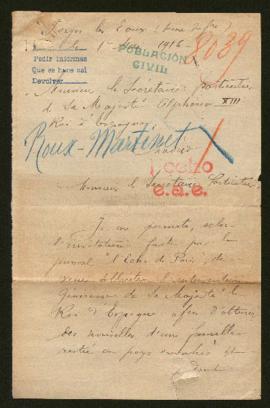 Forges les Eaux (Seine Infre)
le 1er 1916
POBLACIÓN
CIVIL
8039
Pedir informes
Que se hace así
Devolver
Monsieur le Secrétaire Particulier
de Sa Majesté Alphonse XIII
Roi d'Espagne
Roux-Martinet
Madrid
ocho
e.a.e.
Monsieur le Secrétaire Particulier
Je me permets, selon
l'invitation faite par le
journal "l'Echo de Paris", de
venir solliciter l'intervention
Généreuse de Sa Majesté le
Roi d'Espagne afin d'obtenir
des nouvelles d'une famille
restée en pays envahis et
dont